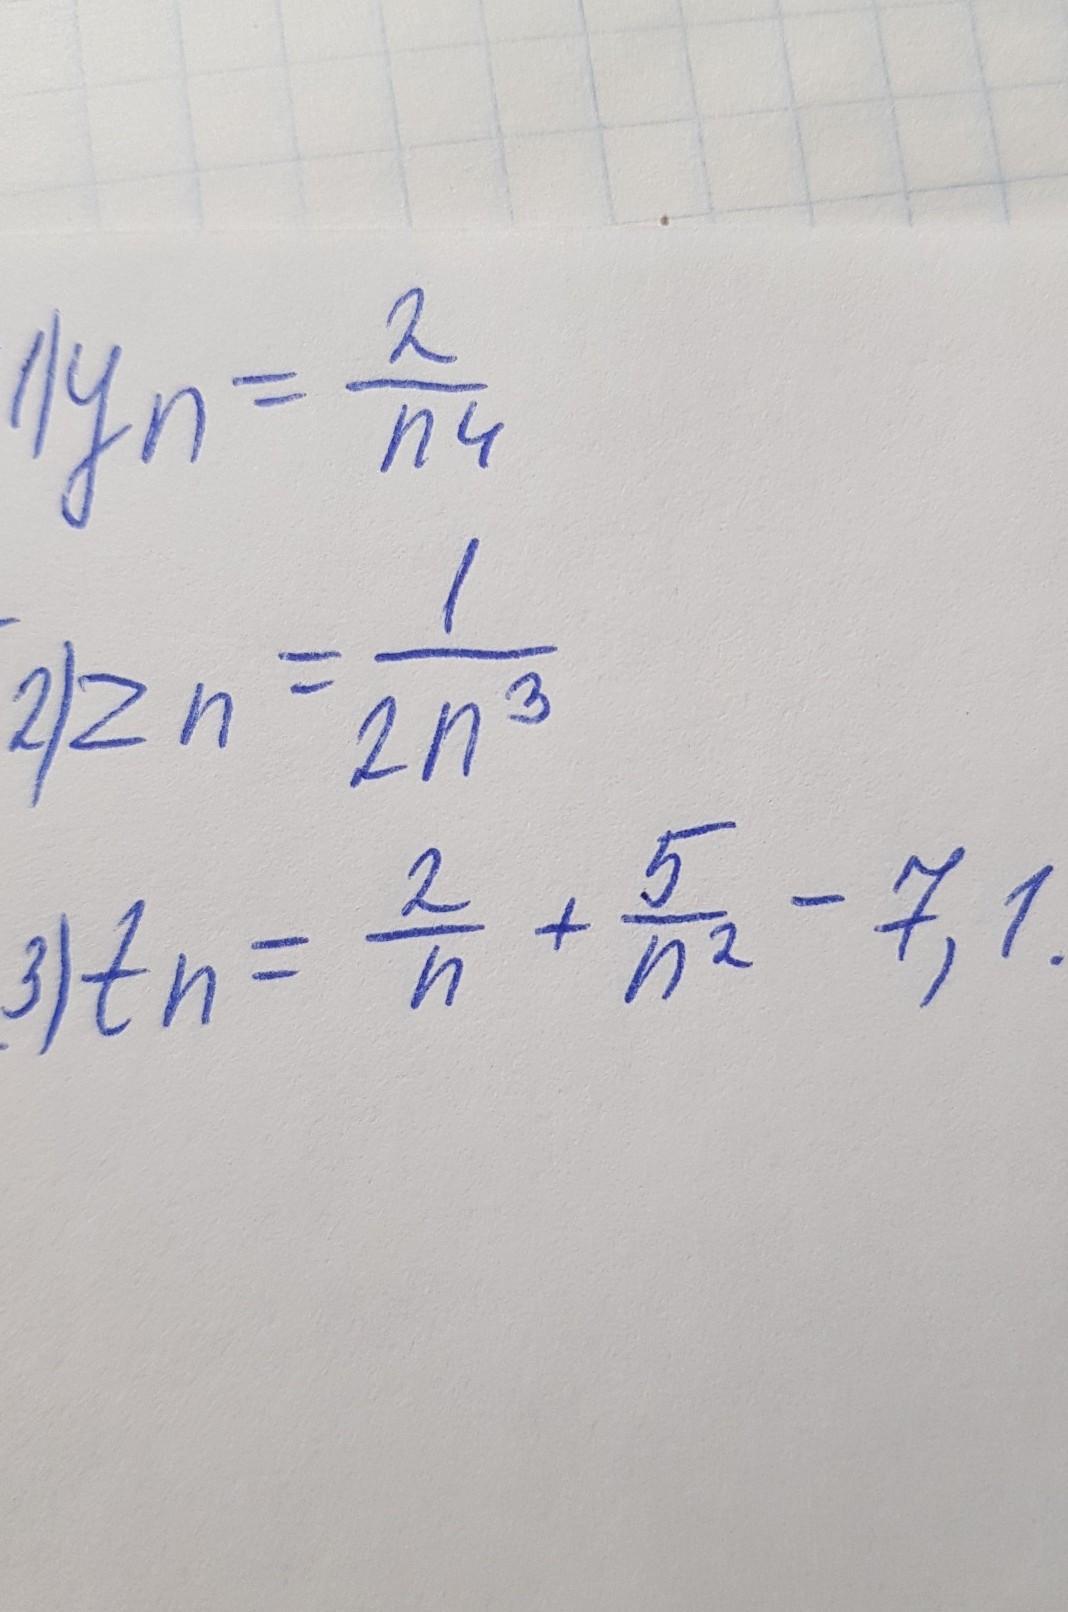 1) yn = 2/n4
2) zn = 1/2n³
3) tn = 2/n + 5/n² - 7,1.